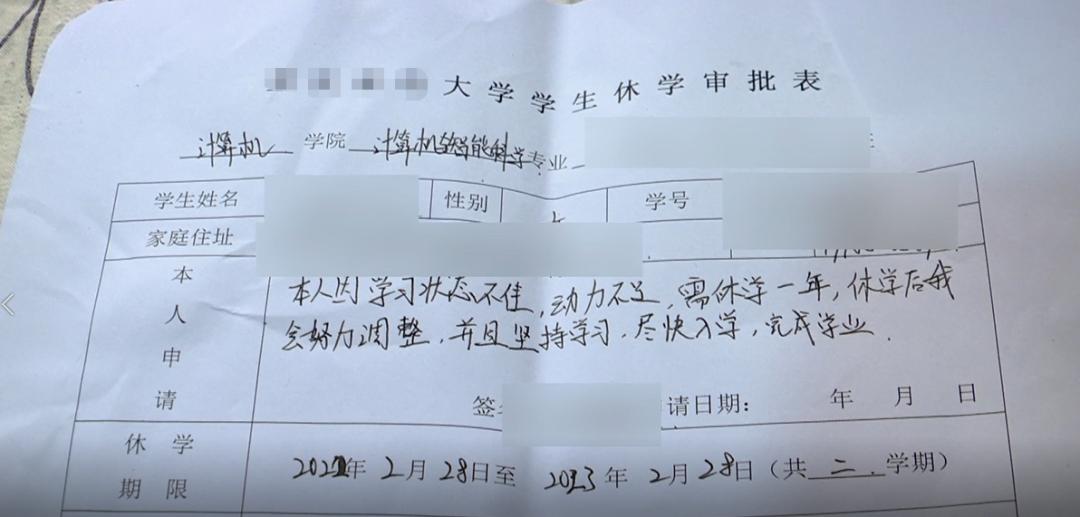 大学学生休学审批表
计算机 学院 计算机智能科学专业
学生姓名 性别 学号
家庭住址
本人申请
本人因学习状态不佳，动力不足，需休学一年，休学后我
会努力调整，并且坚持学习，尽快入学，完成学业.
请日期： 年 月 日
休学期限
2022年 2月 28日至 2023年 2月 28日（共 二 学期）